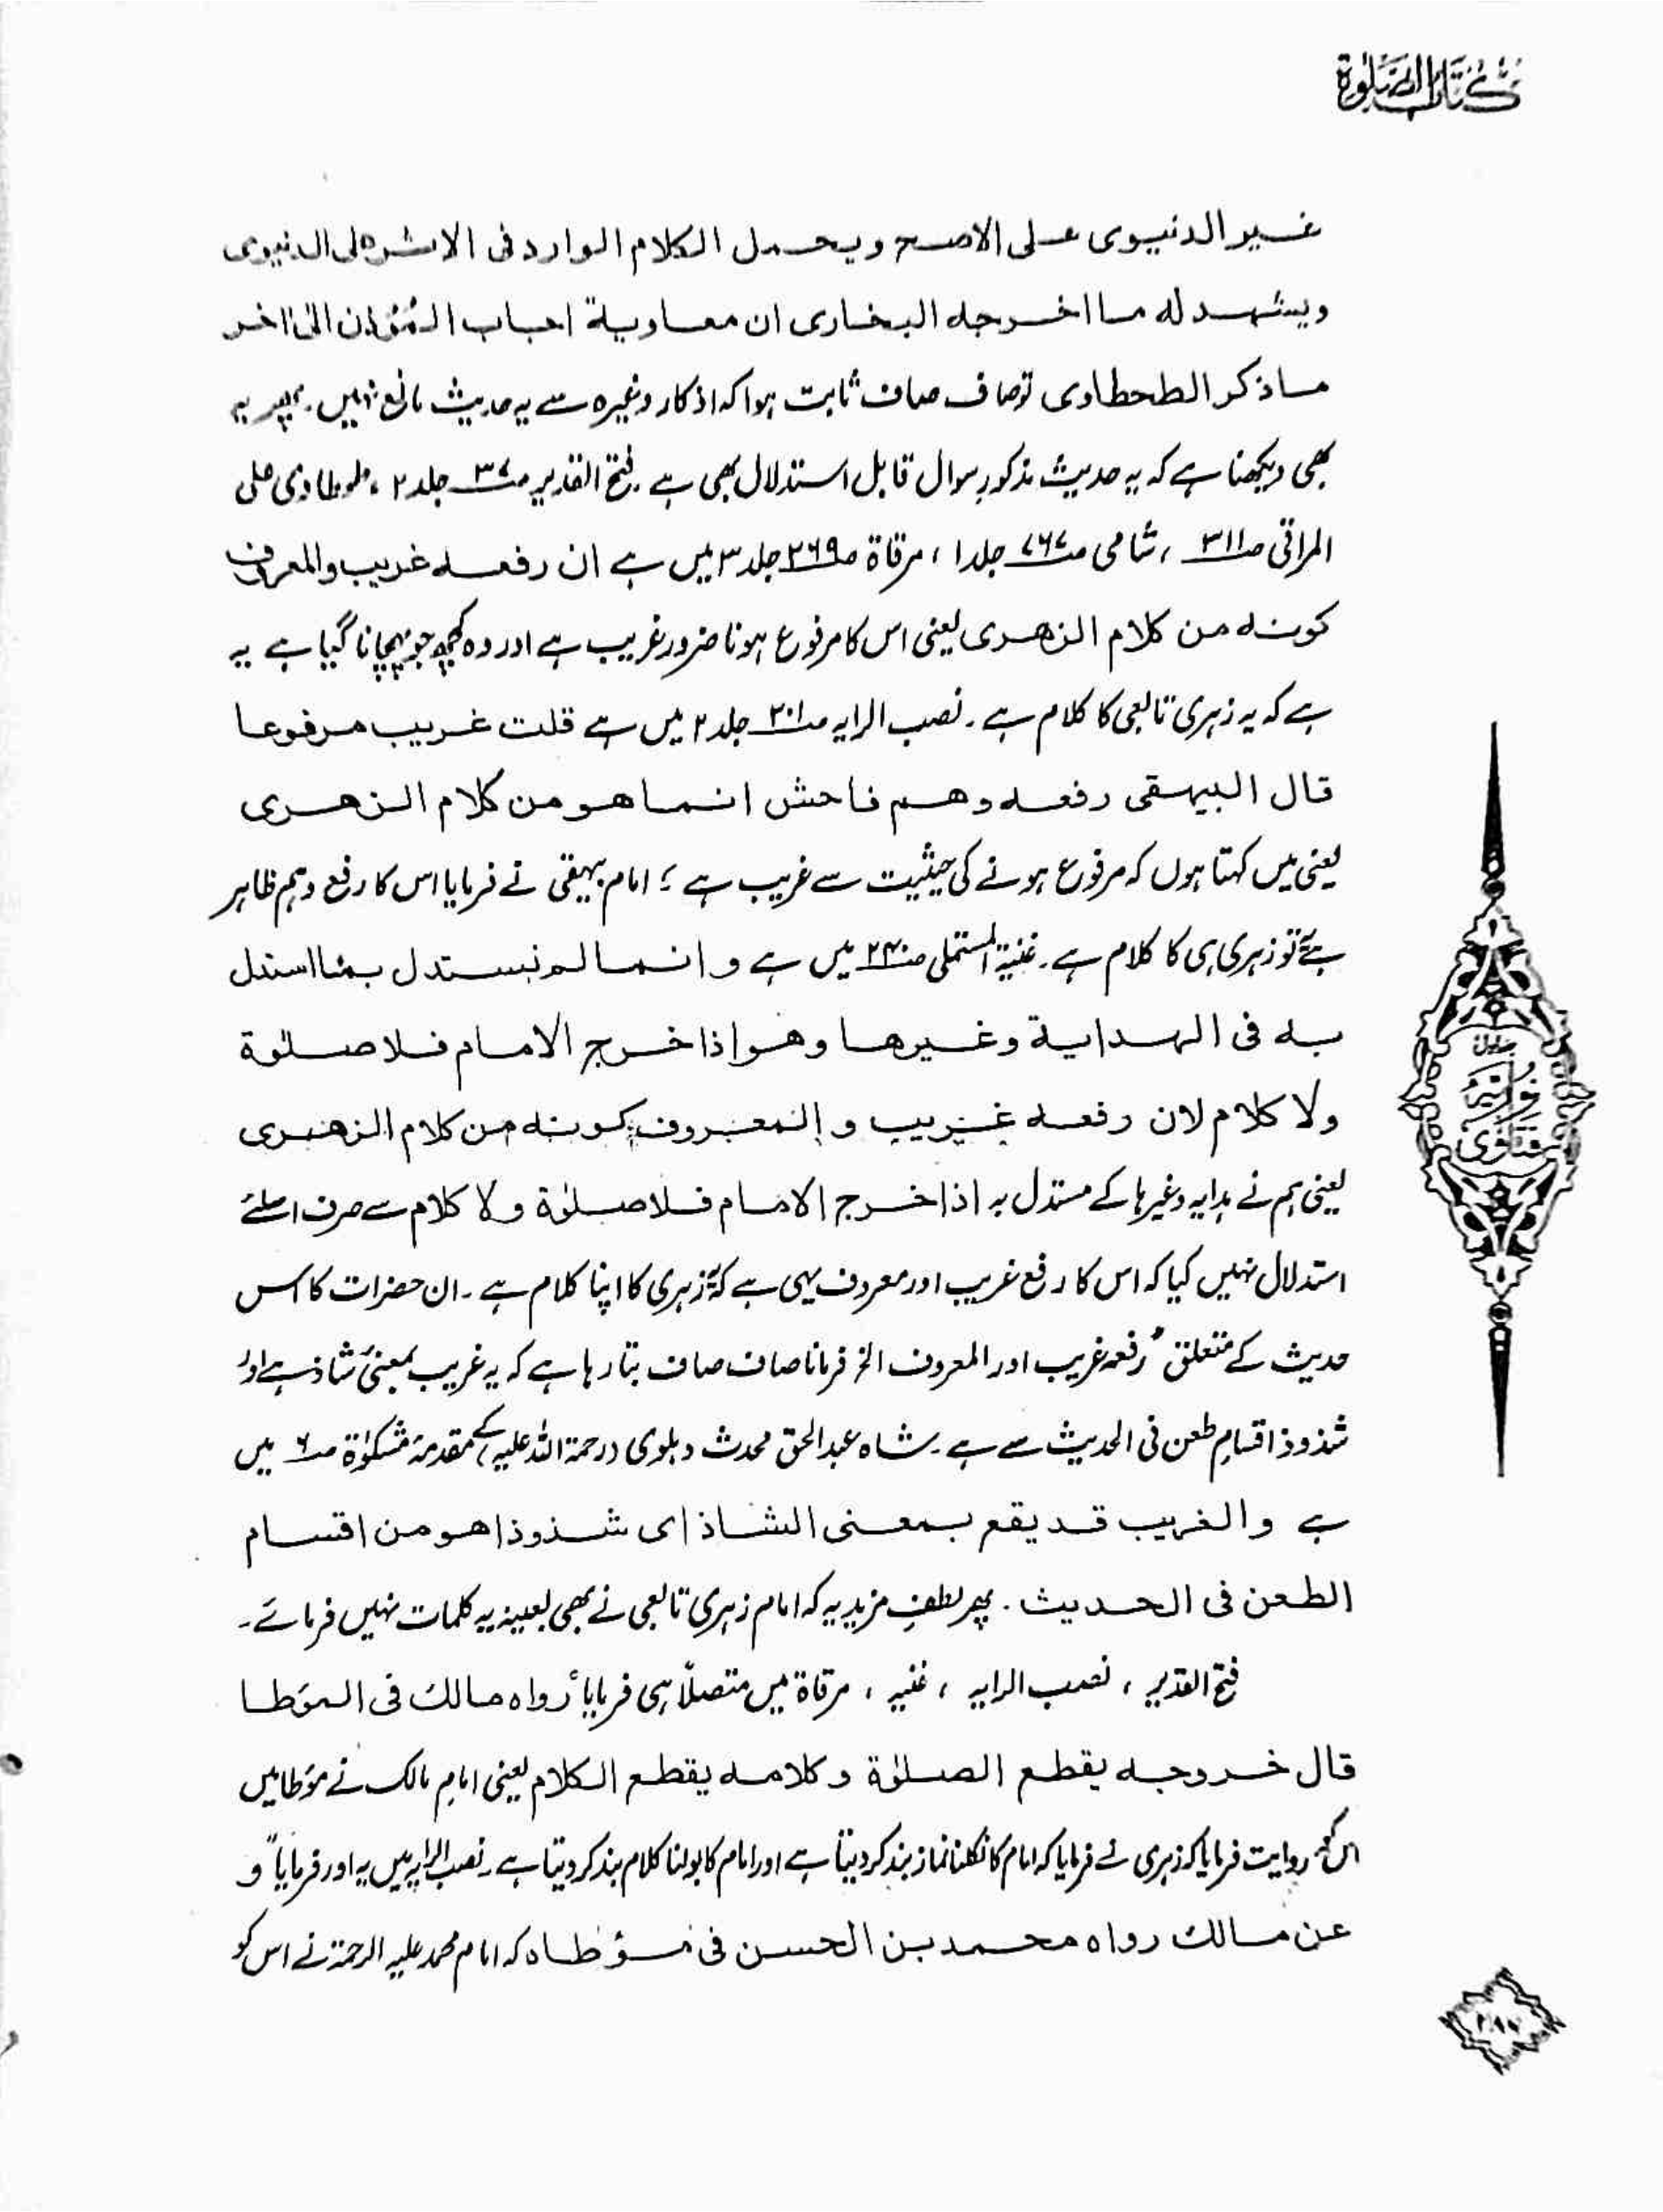 کتاب الصلوٰۃ
غیر الدنیوی علی الاصح ویحمل الکلام الوارد فی الاثر علی الدنیوی
ویشهد له ما اخرجه البخاری ان معاویة اجاب المؤذن الی اٰخر
ما ذکر الطحطاوی تو صاف صاف ثابت ہوا کہ اذکار وغیرہ سے یہ حدیث مانع نہیں۔ پھر یہ
بھی دیکھنا ہے کہ یہ حدیث مذکور سوال قابل استدلال بھی ہے۔ فتح القدیر ص۳۷ جلد ۲، طحطاوی علی
المراقی ص۳۱۱، شامی ص۷۶۷ جلد ۱، مرقاۃ ص۲۶۹ جلد ۳ میں ہے ان رفعه غریب والمعروف
کونه من کلام الزهری یعنی اس کا مرفوع ہونا ضرور غریب ہے اور وہ کچھ جو پہچانا گیا ہے یہ
ہے کہ یہ زہری تابعی کا کلام ہے۔ نصب الرایہ ص۲۰۱ جلد ۲ میں ہے قلت غریب مرفوعا
قال البیهقی رفعه وهم فاحش انما هو من کلام الزهری
یعنی میں کہتا ہوں کہ مرفوع ہونے کی حیثیت سے غریب ہے؛ امام بیہقی نے فرمایا اس کا رفع وہم ظاہر
ہے یہ تو زہری ہی کا کلام ہے۔ غنیۃ المستملی ص۲۴۰ میں ہے و انما لم نستدل بما استدل
به فی الهدایة وغیرها وهو اذا خرج الامام فلا صلوٰة
ولا کلام لان رفعه غریب و المعروف کونه من کلام الزهری
یعنی ہم نے ہدایہ وغیرہا کے مستدل بہ اذا خرج الامام فلا صلوٰة ولا کلام سے صرف اسلئے
استدلال نہیں کیا کہ اس کا رفع غریب اور معروف یہی ہے کہ یہ زہری کا اپنا کلام ہے۔ ان حضرات کا اس
حدیث کے متعلق "رفعہ غریب اور المعروف الخ فرمانا صاف صاف بتا رہا ہے کہ یہ غریب بمعنیٔ شاذ ہے اور
شذوذ اقسامِ طعن فی الحدیث سے ہے۔ شاہ عبدالحق محدث دہلوی (رحمۃ اللہ علیہ) کے مقدمۂ مشکوٰۃ ص۶ میں
ہے والغریب قد یقع بمعنی الشاذ ای شذوذا هو من اقسام
الطعن فی الحدیث۔ پھر لطفِ مزید یہ کہ امام زہری تابعی نے بھی بعینہٖ یہ کلمات نہیں فرمائے۔
فتح القدیر، نصب الرایہ، غنیہ، مرقاۃ میں متصلاً ہی فرمایا "رواه مالك فی المؤطا
قال خروجه یقطع الصلوٰة وکلامه یقطع الکلام یعنی امام مالک نے مؤطا میں
اس کو روایت فرمایا کہ زہری نے فرمایا کہ امام کا نکلنا نماز بند کر دیتا ہے اور امام کا بولنا کلام بند کر دیتا ہے۔ نصب الرایہ میں یہ اور فرمایا "و
عن مالك رواه محمد بن الحسن فی مؤطاه کہ امام محمد علیہ الرحمۃ نے اس کو
فتاوی نوریہ